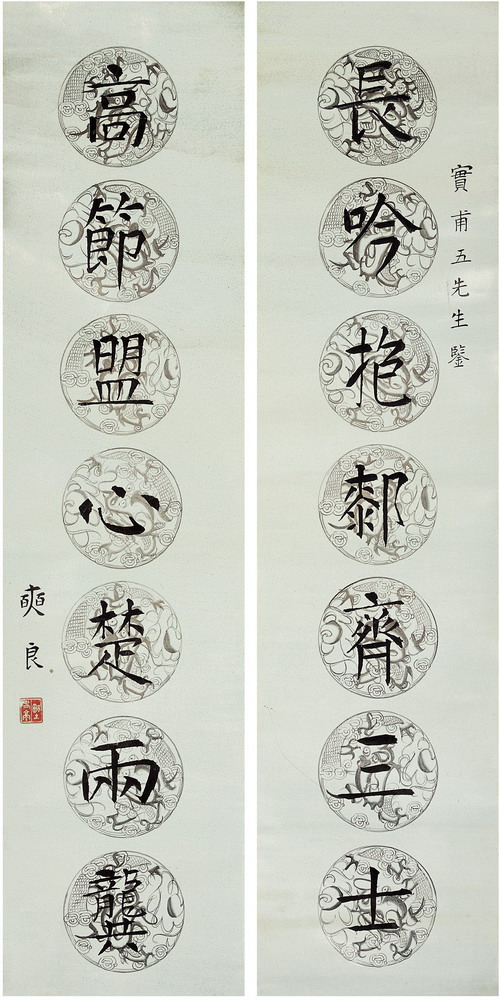 長吟抱䣛齊三士
實甫五先生鑒
高節盟心楚兩龔
奭良